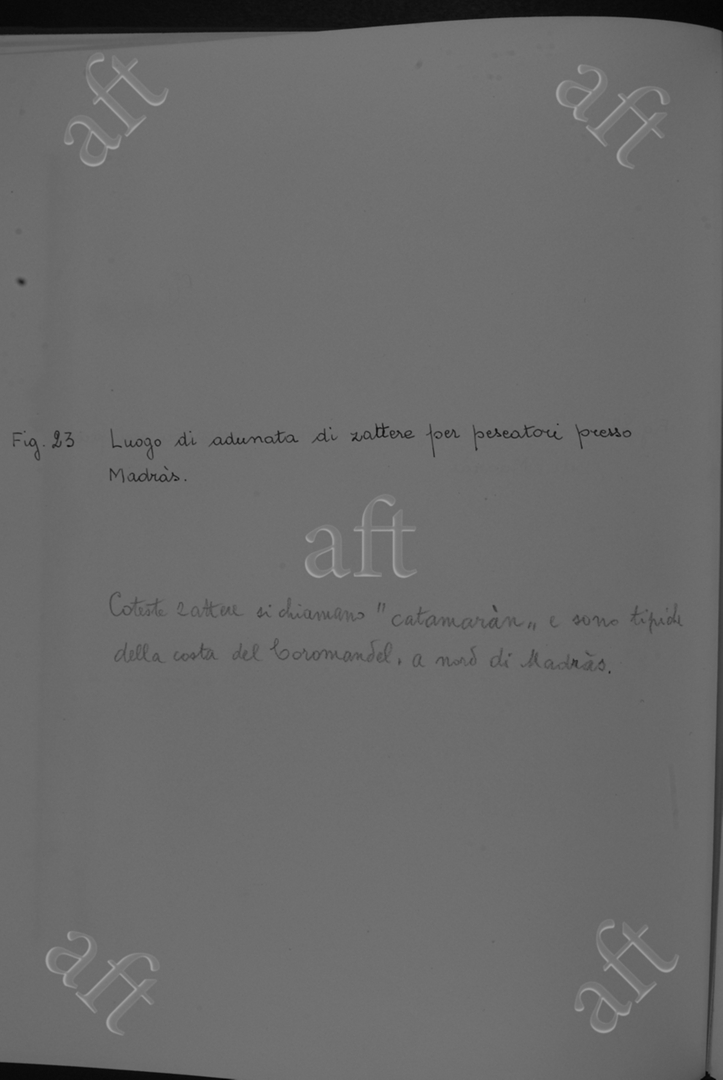 Fig. 23 Luogo di adunata di zattere per pescatori presso
Madràs.
Coteste zattere si chiamano "catamaràn„ e sono tipiche
della costa del Coromandel, a nord di Madràs.
aft
aft
aft
aft
aft